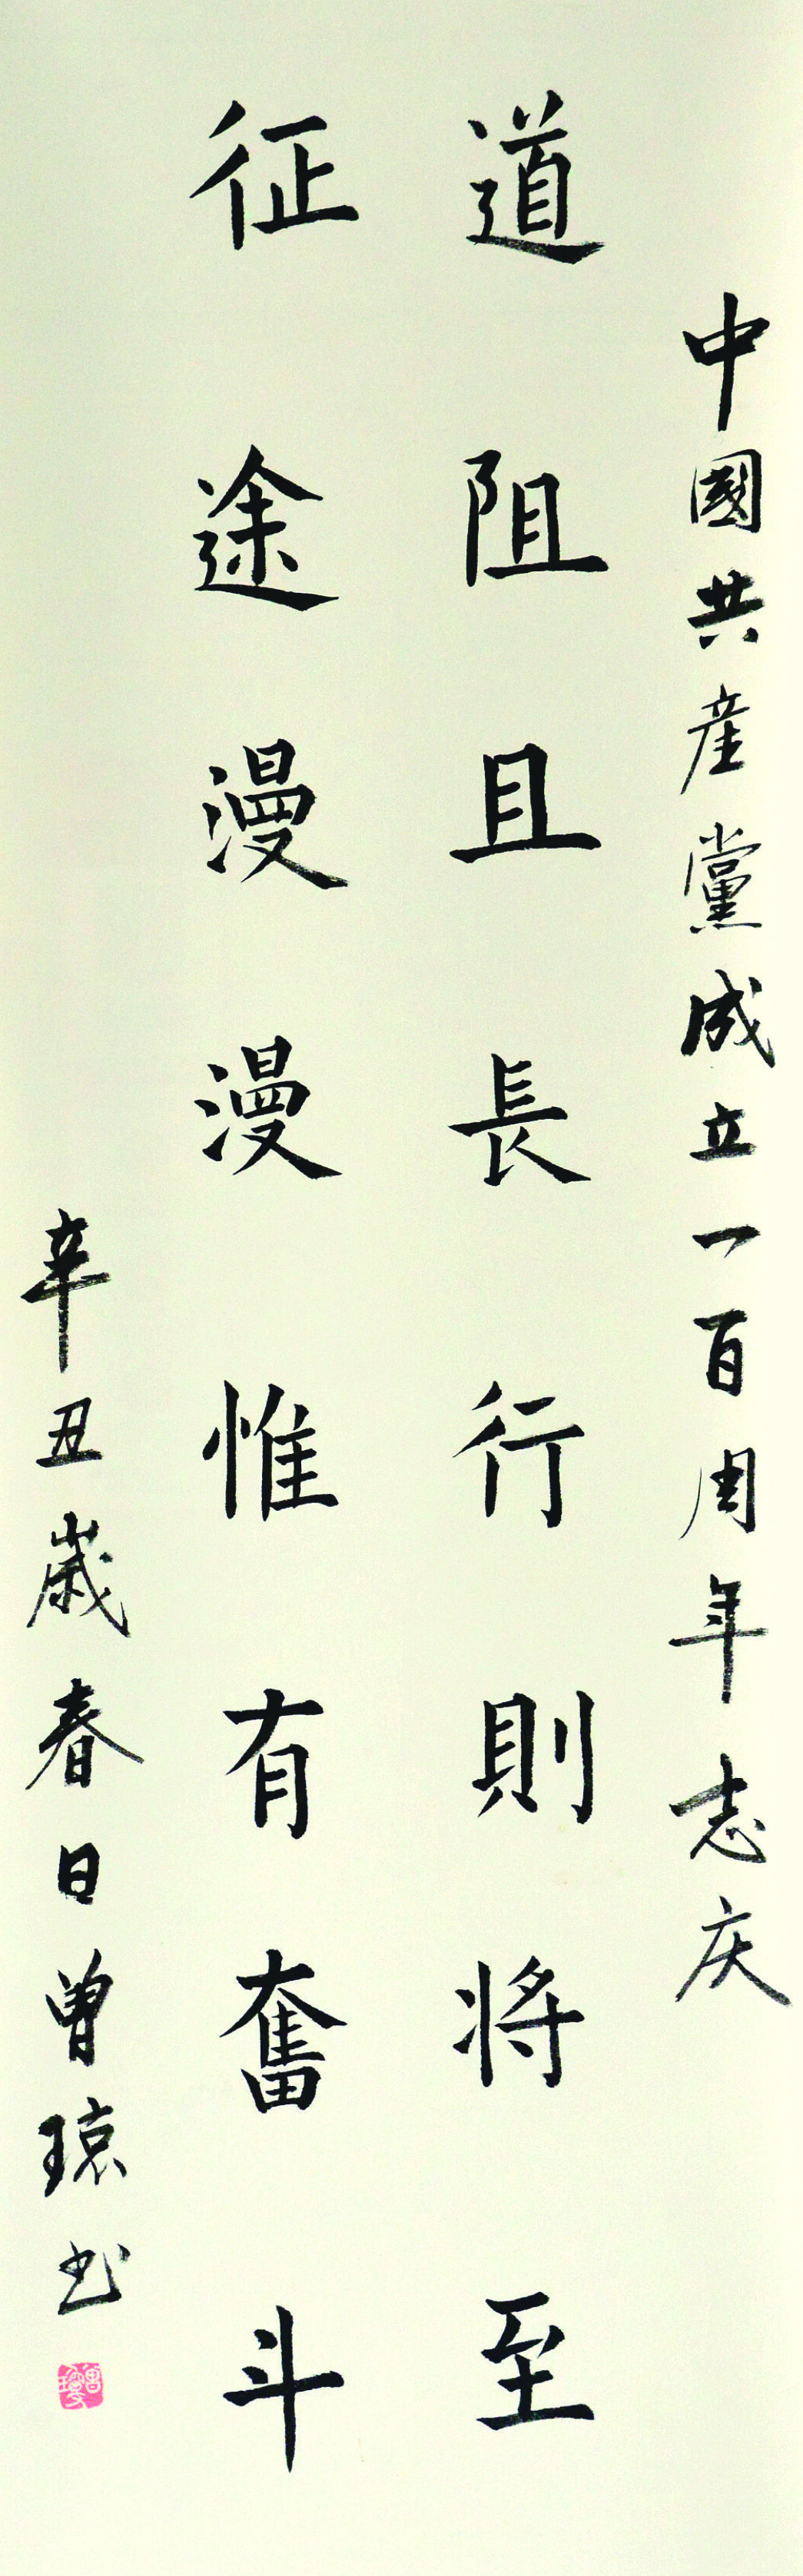 中國共産黨成立一百周年志庆
道阻且長行則将至
征途漫漫惟有奮斗
辛丑歲春日曾琼书
曾瓊